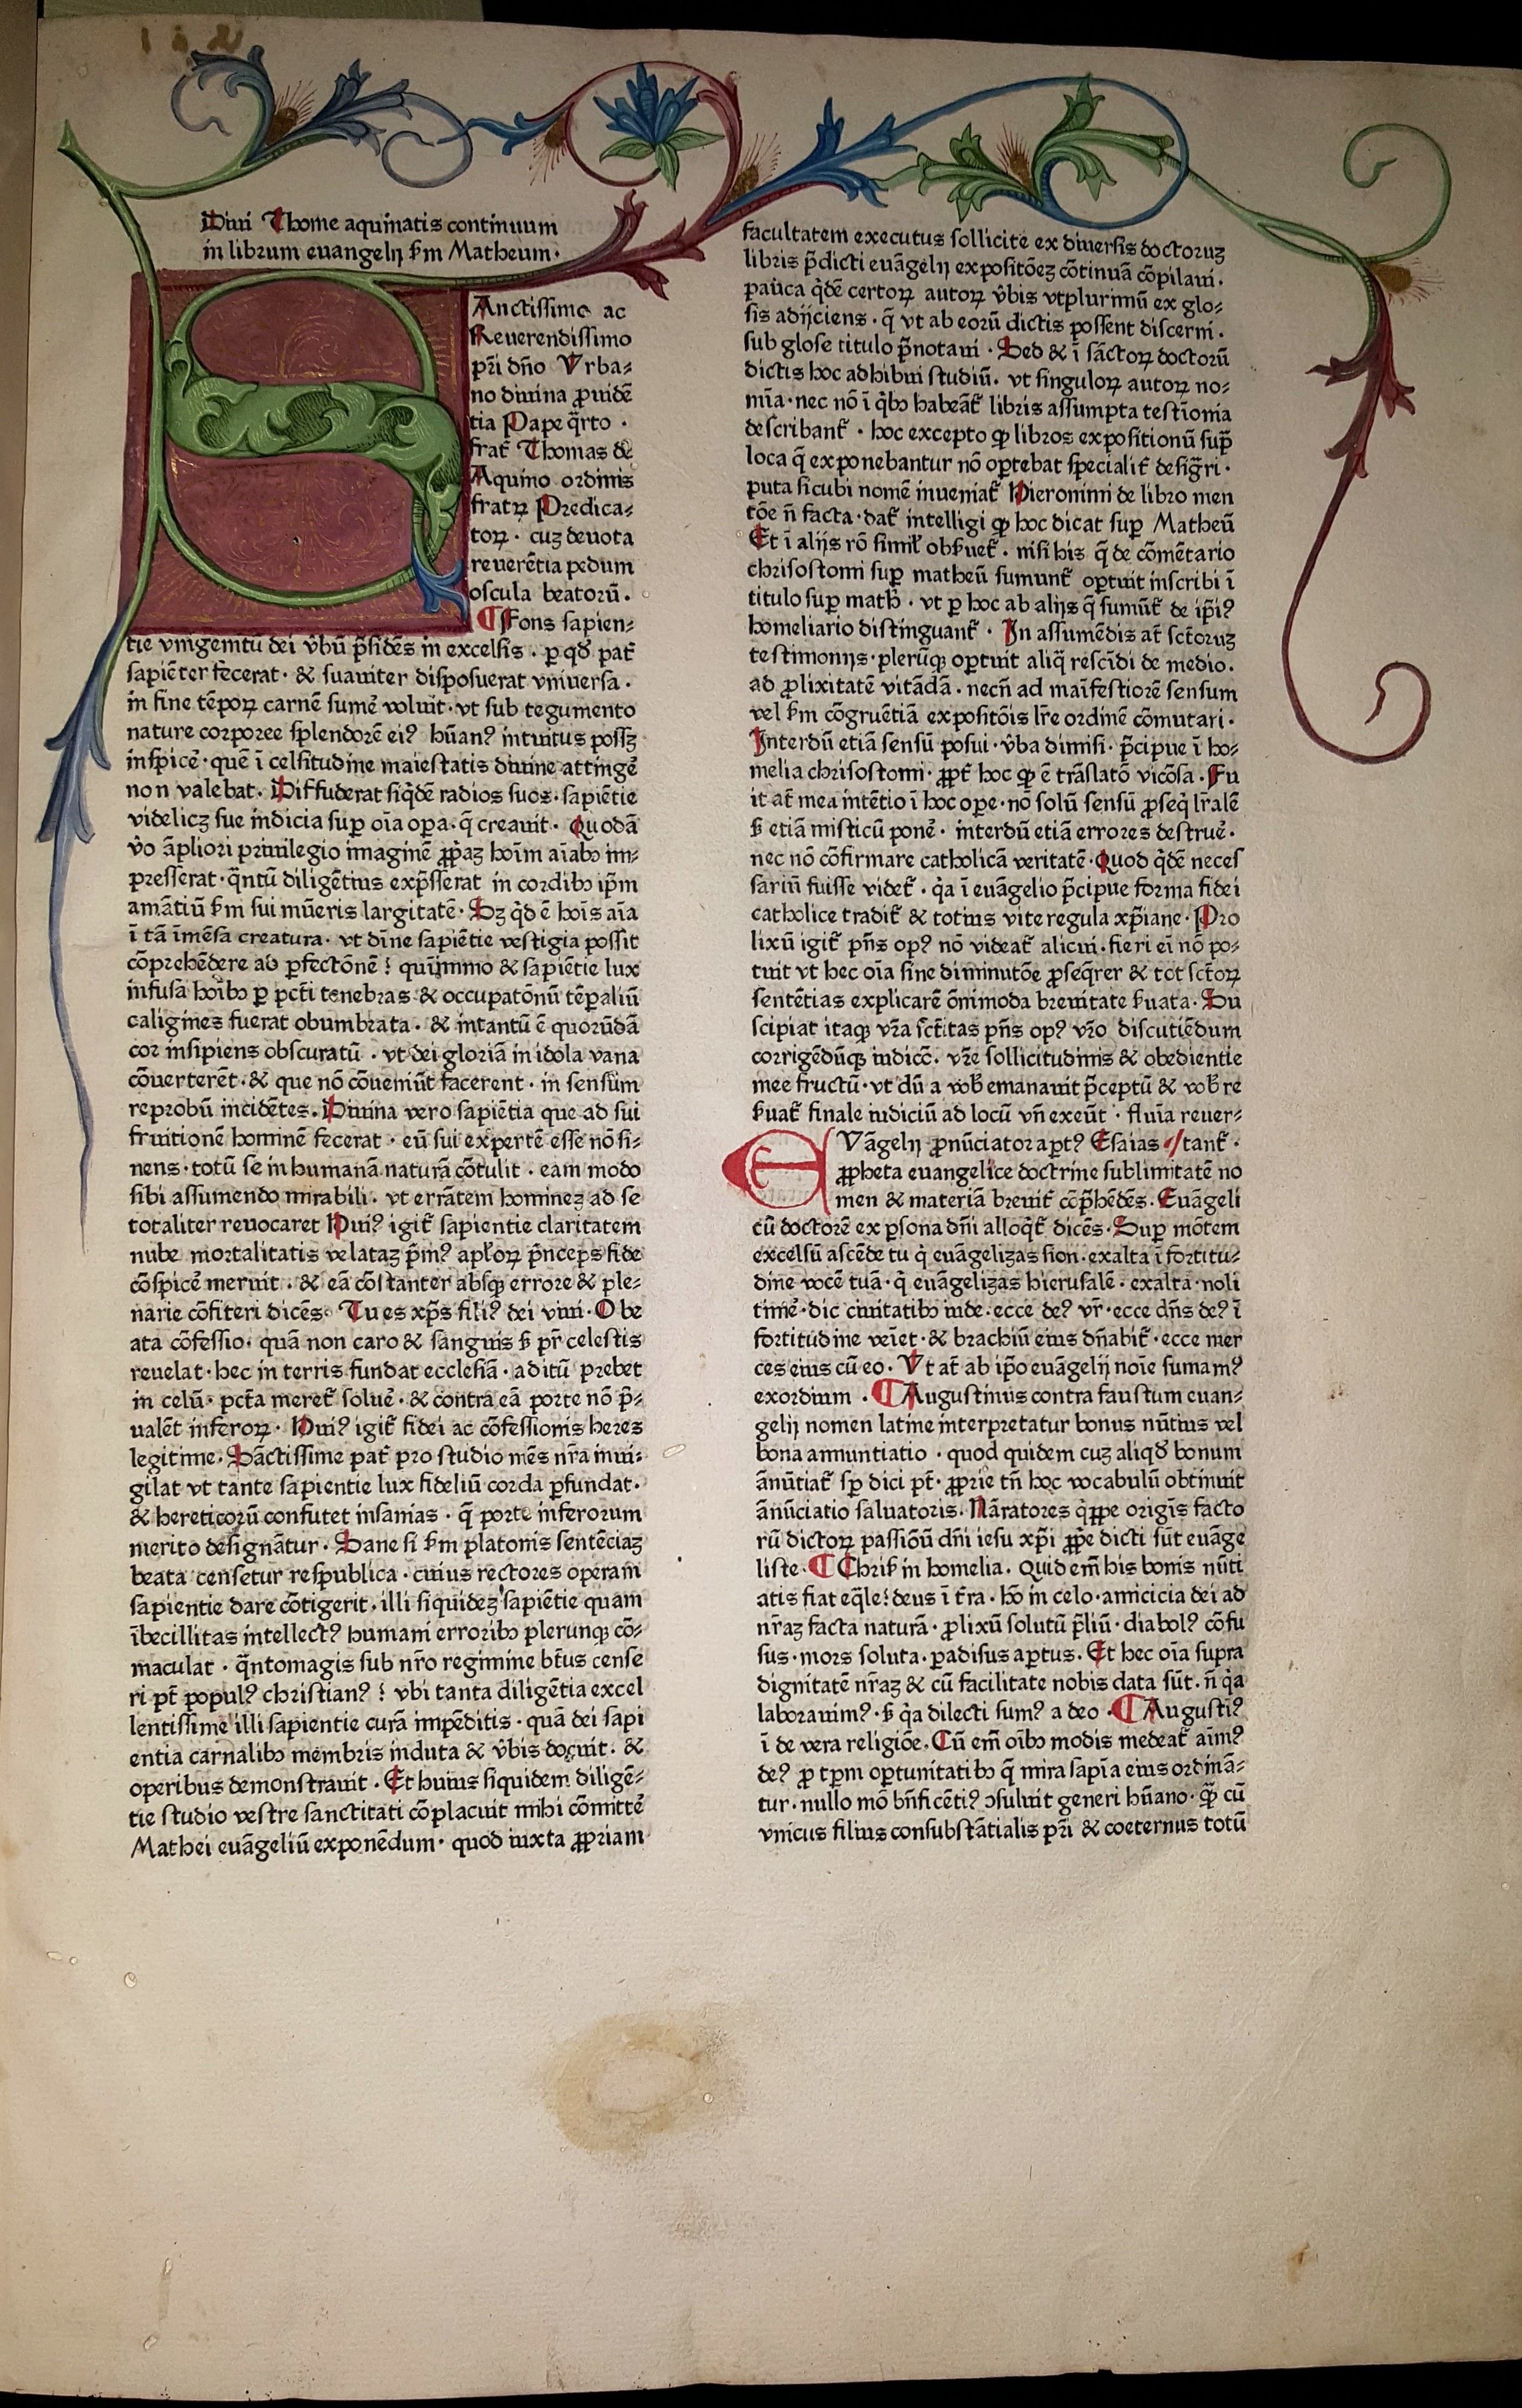 Diui Thome aquinatis continuum
in librum euangelij ẜm Matheum·
Anctissimo ac
Reuerendissimo
pr̄i dn̄o Vrba⸗
no diuina ꝓuidē
tia Pape q̈rto ·
frat̄ Thomas de
Aquino ordinis
fratrꝝ Predica⸗
toꝝ · cuꝫ deuota
reuerētia pedum
oscula beatorū .
¶ Fons sapien⸗
tie vnigenitū dei v̂bū p̄sidēs in excelsis . ꝑ qd̄ pat̄
sapiēter fecerat · & suauiter disposuerat vniuersa .
in fine tēpoꝝ carnē sumē voluit · vt sub tegumento
nature corporee splendorē eiꝰ hūanꝰ intuitus possꝫ
inspicē · quē ī celsitudine maiestatis diuine attingē
non valebat . Diffuderat siq̇dē radios suos · sapiētie
videlicꝫ sue indicia suꝑ oīa oꝑa · q̄ creauit · Quodā
v̂o āpliori priuilegio imaginē ꝓp̄aꝫ hoīm aīabꝰ im⸗
presserat · q̈ntū diligētius exp̄sserat in cordibꝰ ip̄m
amātiū ẜm sui mūeris largitatē · Sꝫ q̇d ē hoīs aīa
ī tā īmēsa creatura · vt diīne sapiētie vestigia possit
cōprehēdere ad ꝑfectōnē ⁝ quīimmo & sapiētie lux
infusa hoībꝰ ꝑ pctī tenebras & occupatōnū tēpaliū
caligines fuerat obumbrata . & intantū ē quorūdā
cor insipiens obscuratū . vt dei gloriā in idola vana
cōuerterēt · & que nō cōueniūt facerent · in sensum
reprobū incidētes. Diuina vero sapiētia que ad sui
fruitionē hominē fecerat · eū sui expertē esse nō si⸗
nens · totū se in humanā naturā cōtulit . eam modo
sibi assumendo mirabili . vt errātem hominez ad se
totaliter reuocaret Huiꝰ igit̄ sapientie claritatem
nube mortalitatis velataꝫ p̄mꝰ apl̄oꝝ p̄nceps fide
cōspicē meruit . & eā cōstanter absqꝫ errore & ple⸗
narie cōfiteri dicēs · Tu es xp̄s filiꝰ dei viui · O be
ata cōfessio . quā non caro & sanguis ẜ pr̄ celestis
reuelat · hec in terris fundat ecclesiā · aditū prebet
in celū · pctā meret̄ soluē · & contra eā porte nō p̄⸗
ualēt inferoꝝ · Huiꝰ igit̄ fidei ac cōfessionis heres
legitime . Sāctissime pat̄ pro studio mēs nr̄a inui⸗
gilat vt tante sapientie lux fideliū corda ꝑfundat .
& hereticorū confutet insanias . q̄ porte inferorum
merito designātur . Sane si ẜm platonis sentēciaꝫ
beata censetur respublica . cuius rectores operam
sapientie dare cōtigerit . illi siquidez sapiētie quam
ībecillitas intellectꝰ humani erroribꝰ plerunqꝫ cō⸗
maculat . q̈ntomagis sub nr̄o regimine bt̄us cense
ri pt̄ populꝰ christianꝰ ⁝ vbi tanta diligētia excel
lentissime illi sapientie curā impēditis . quā dei sapi
entia carnalibꝰ membris induta & v̂bis docuit . &
operibus demonstrauit . Et huius siquidem diligē⸗
tie studio vestre sanctitati cōplacuit mihi cōmittē
Mathei euāgeliū exponēdum · quod iuxta ꝓpriam
facultatem executus sollicite ex diuersis doctoruꝫ
libris p̄dicti euāgelij expositōeꝫ cōtinuā cōpilaui .
pauca q̇dē certoꝝ autoꝝ v̂bis vtplurimū ex glo⸗
sis adijciens . q̄ vt ab eorū dictis possent discerni .
sub glose titulo p̄notaui · Sed & ī sāctoꝝ doctorū
dictis hoc adhibui studiū . vt singuloꝝ autoꝝ no⸗
mīa · nec nō ī q̇bꝰ habeāt̄ libris assumpta testīonia
describant̄ · hoc excepto qꝫ libros expositionū suꝑ
loca q̄ exponebantur nō oꝑtebat specialit̄ desigr̄i ·
puta sicubi nomē inueniat̄ Hieronimi de libro men
tōe n̄ facta · dat̄ intelligi qꝫ hoc dicat suꝑ Matheū
Et ī alijs rō simil̄ obẜuet̄ . nisi his q̄ de cōmētario
chrisostomi suꝑ matheū sumunt̄ oꝑtuit inscribi ī
titulo suꝑ math̄ . vt ꝑ hoc ab alijs q̄ sumūt̄ de ip̄iꝰ
homeliario distinguant̄ · In assumēdis at̄ sct̄oruꝫ
testimonijs · plerūqꝫ oꝑtuit aliq̄ rescīdi de medio .
ad ꝓlixitatē vitādā . necn̄ ad maīfestiorē sensum
vel ẜm cōgruētiā expositōis lr̄e ordinē cōmutari .
Interdū etiā sensū posui · v̂ba dimisi · p̄cipue ī ho⸗
melia chrisostomi · ꝓpt̄ hoc qꝫ ē trāslatō vicōsa . Fu
it at̄ mea intētio ī hoc oꝑe · nō solū sensū ꝓseq̇ lr̄alē
ẜ etiā misticū ponē · interdū etiā errores destruē ·
nec nō cōfirmare catholicā veritatē · Quod q̇dē neces
sariū fuisse videt̄ . q̇a ī euāgelio p̄cipue forma fidei
catholice tradit̄ & totius vite regula xp̄iane · Pro
lixū igit̄ pn̄s opꝰ nō videat̄ alicui . fieri eī nō po⸗
tuit vt hec oīa sine diminutōe ꝓseq̄rer & tot sct̄oꝝ
sentētias explicarē ōnimoda breuitate ẜuata . Su
scipiat itaqꝫ vr̄a sct̄itas pn̄s opꝰ vr̄o discutiēdum
corrigēdūqꝫ iudicō . vr̄e sollicitudinis & obedientie
mee fructū · vt dū a vob̄ emanauit p̄ceptū & vob̄ re
ẜuat̄ finale iudiciū ad locū vn̄ exeūt · fluīa reuer⸗
EVāgelij ꝓnūciator aꝑtꝰ Esaias //tant̄ .
ꝓpheta euangelice doctrine sublimitatē no
men & materiā breuit̄ cōp̄hēdēs . Euāgeli
cū doctorē ex ꝑsona dn̄i alloq̇t̄ dicēs . Suꝑ mōtem
excelsū ascēde tu q̇ euāgelizas sion . exalta ī fortitu⸗
dine vocē tuā · q̇ euāgelizas hierusalē · exalta · noli
timē · dic ciuitatibꝰ iude . ecce deꝰ vr̄ · ecce dn̄s deꝰ ī
fortitudine veīet · & brachiū eius dn̄abit̄ · ecce mer
ces eius cū eo . Vt at̄ ab ip̄o euāgelij noīe sumamꝰ
exordium . ¶ Augustinus contra faustum euan⸗
gelij nomen latine interpretatur bonus nūtius vel
bona annuntiatio · quod quidem cuꝫ aliqd̄ bonum
ānūtiat̄ sꝑ dici pt̄ · ꝓprie tn̄ hoc vocabulū obtinuit
ānūciatio saluatoris . Nāratores q̇ppe origīs facto
rū dictoꝝ passiōū dn̄i iesu xp̄i ꝓpe dicti sūt euāge
liste . ¶ Chriẜ in homelia . Quid em̄ his bonis nūti
atis fiat eq̄le ⁝ deus ī t̄ra · hō in celo · amicicia dei ad
nr̄aꝫ facta naturā · ꝓlixū solutū p̄liū · diabolꝰ cōfu
sus · mors soluta . ꝑadisus aꝑtus . Et hec oīa supra
dignitatē nr̄aꝫ & cū facilitate nobis data sūt . n̄ q̇a
laborauimꝰ · ẜ q̇a dilecti sumꝰ a deo · ¶ Augustiꝰ
ī de vera religiōe . Cū em̄ oībꝰ modis medeat̄ aīmꝰ
deꝰ ꝓ tꝑm oꝑtunitatibꝰ q̄ mira sapīa eius ordinā⸗
tur · nullo mō bn̄ficētiꝰ ꝯsuluit generi hūano · qꝫ cū
vnicus filius consubstātialis pr̄i & coeternus totū